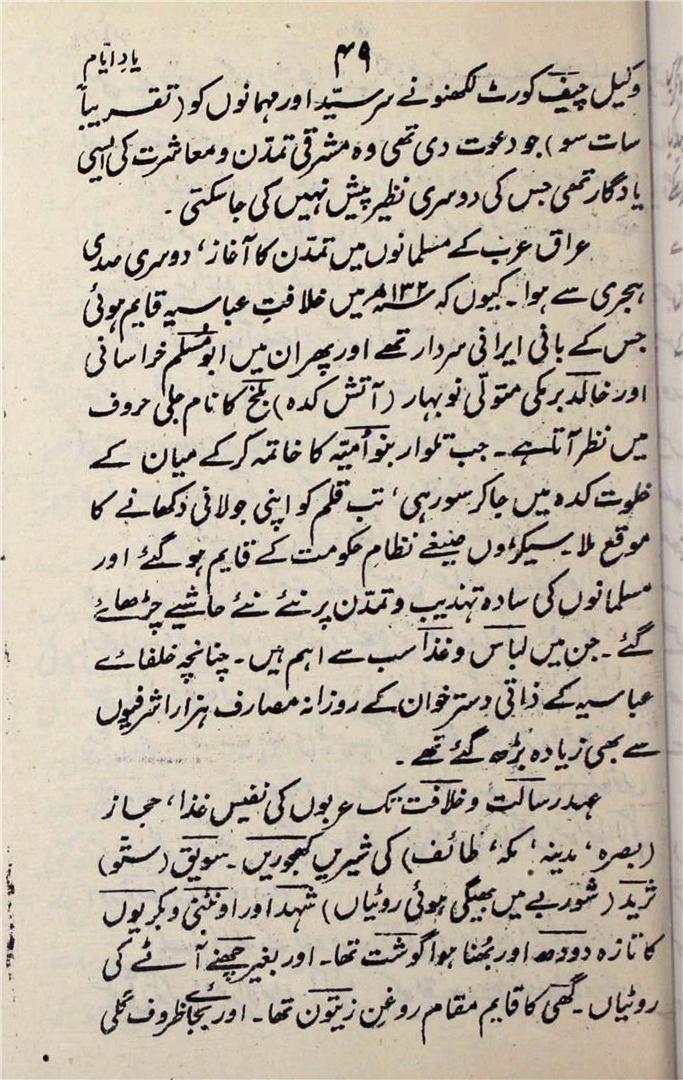 ۴۹
یادِ ایّام
وکیل چیف کورٹ لکھنو نے سرسیّد اور مہمانوں کو (تقریباً
سات سو) جو دعوت دی تھی وہ مشرقی تمدّن و معاشرت کی ایسی
یادگار تھی جس کی دوسری نظیر پیش نہیں کی جا سکتی۔
عراق عرب کے مسلمانوں میں تمدّن کا آغاز، دوسری صدی
ہجری سے ہوا۔ کیوں کہ ۱۳۲ھ میں خلافتِ عباسیہ قایم ہوئی
جس کے بانی ایرانی سردار تھے اور پھر ان میں ابو مسلم خراسانی
اور خالد برمکی متولّی نوبہار (آتش کدہ) بلخ کا نام جلی حروف
میں نظر آتا ہے۔ جب تلوار بنو اُمیّہ کا خاتمہ کر کے میان کے
خلوت کدہ میں جا کر سو رہی، تب قلم کو اپنی جولانی دکھانے کا
موقع ملا۔ سیکڑوں صیغے نظامِ حکومت کے قایم ہو گئے اور
مسلمانوں کی سادہ تہذیب و تمدّن پر نئے نئے حاشیے چڑھائے
گئے۔ جن میں لباس و غذا سب سے اہم ہیں۔ چنانچہ خلفائے
عباسیہ کے ذاتی دسترخوان کے روزانہ مصارف ہزار اشرفیوں
سے بھی زیادہ بڑھ گئے تھے۔
عہد رسالت و خلافت تک عربوں کی نفیس غذا، حجاز
(بصرہ، مدینہ، مکہ، طائف) کی شیریں کھجوریں۔ سویق (ستّو)
ثرید (شوربے میں بھیگی ہوئی روٹیاں) شہد اور اونٹنی و بکریوں
کا تازہ دودھ اور بُھنا ہوا گوشت تھا۔ اور بغیر چھنے آٹے کی
روٹیاں۔ گھی کا قایم مقام روغنِ زیتون تھا۔ اور بجائے ظروف گلی